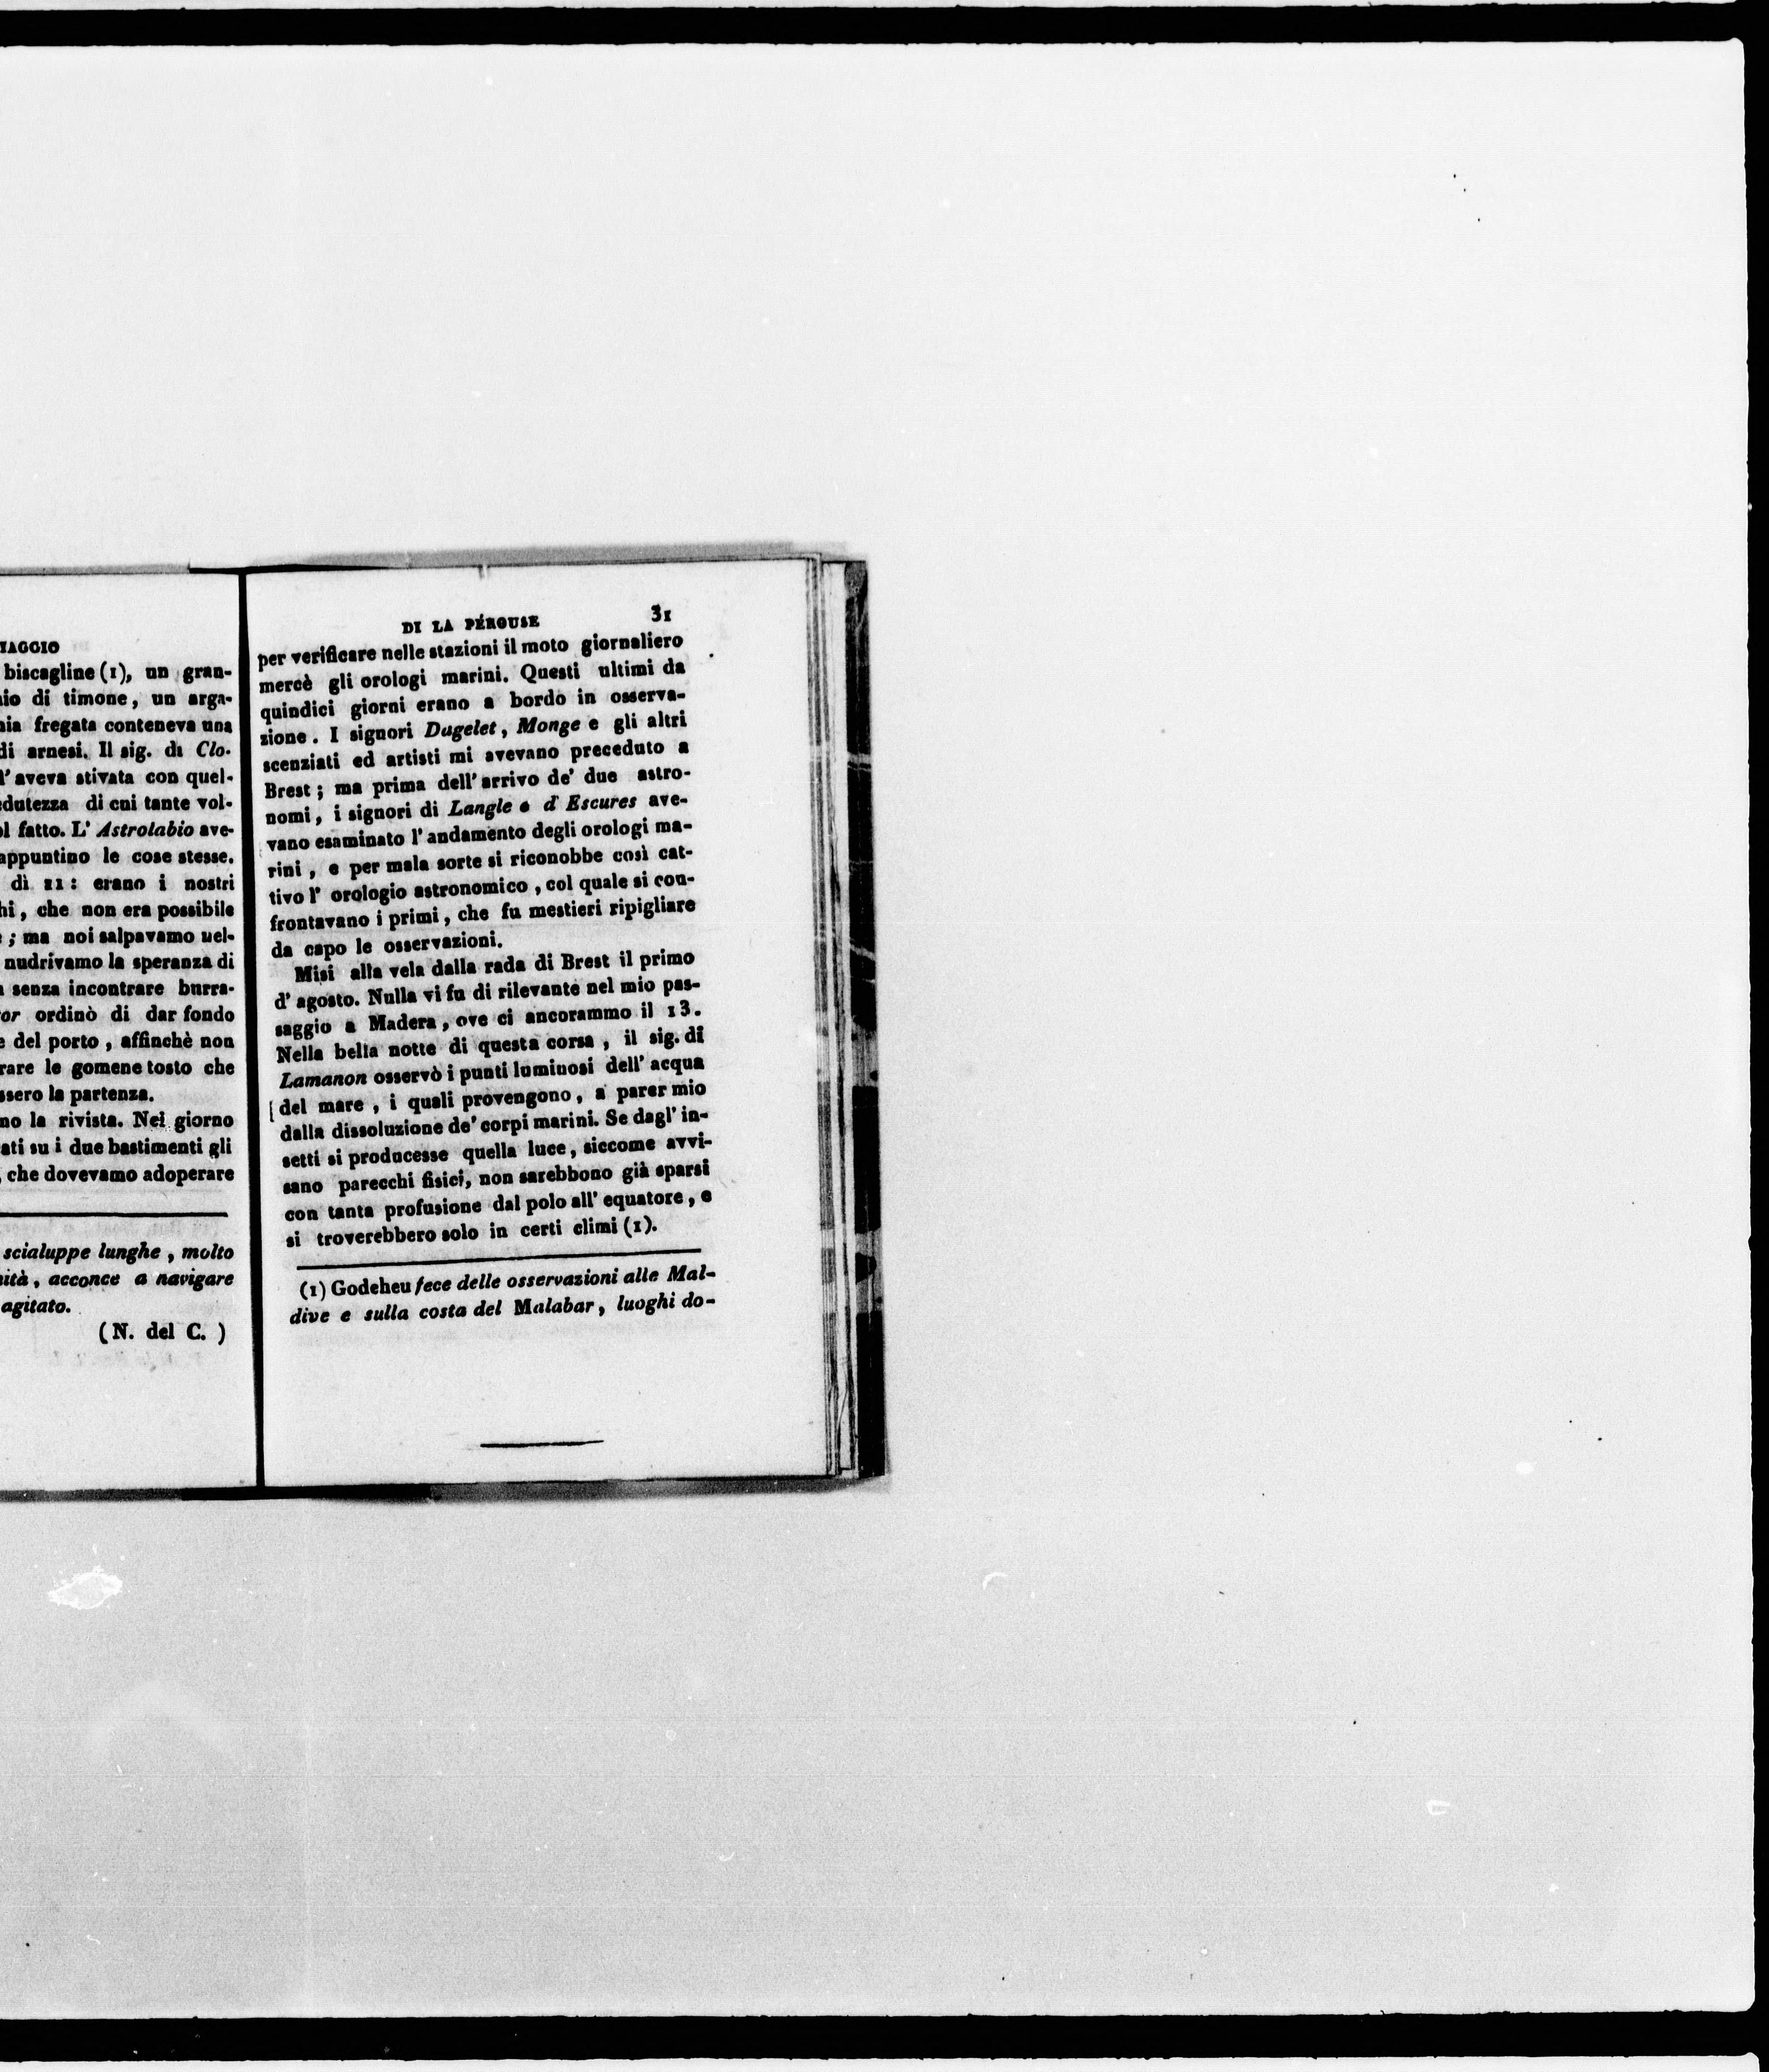 biscagline (1), un gran-
di timone, un arga-
fregata conteneva una
di arnesi. Il sig. di Clo-
l' aveva stivata con quel-
di cui tante vol-
fatto. L' Astrolabio ave-
appuntino le cose stesse.
dì 11: erano i nostri
che non era possibile
; ma noi salpavamo nel-
nudrivamo la speranza di
senza incontrare burra-
ordinò di dar fondo
del porto, affinchè non
le gomene tosto che
la partenza.
la rivista. Nel giorno
su i due bastimenti gli
, che dovevamo adoperare
scialuppe lunghe, molto
acconce a navigare
agitato.
(N. del C.)
DI LA PÉROUSE 31
per verificare nelle stazioni il moto giornaliero
mercè gli orologi marini. Questi ultimi da
quindici giorni erano a bordo in osserva-
zione. I signori Dagelet, Monge e gli altri
scenziati ed artisti mi avevano preceduto a
Brest; ma prima dell' arrivo de' due astro-
nomi, i signori di Langle e d' Escures ave-
vano esaminato l' andamento degli orologi ma-
rini, e per mala sorte si riconobbe così cat-
tivo l' orologio astronomico, col quale si con-
frontavano i primi, che fu mestieri ripigliare
da capo le osservazioni.
Misi alla vela dalla rada di Brest il primo
d' agosto. Nulla vi fu di rilevante nel mio pas-
saggio a Madera, ove ci ancorammo il 13.
Nella bella notte di questa corsa, il sig. di
Lamanon osservò i punti luminosi dell' acqua
del mare, i quali provengono, a parer mio
dalla dissoluzione de' corpi marini. Se dagl' in-
setti si producesse quella luce, siccome avvi-
sano parecchi fisici, non sarebbono già sparsi
con tanta profusione dal polo all' equatore, e
si troverebbero solo in certi climi (1).
(1) Godeheu fece delle osservazioni alle Mal-
dive e sulla costa del Malabar, luoghi do-